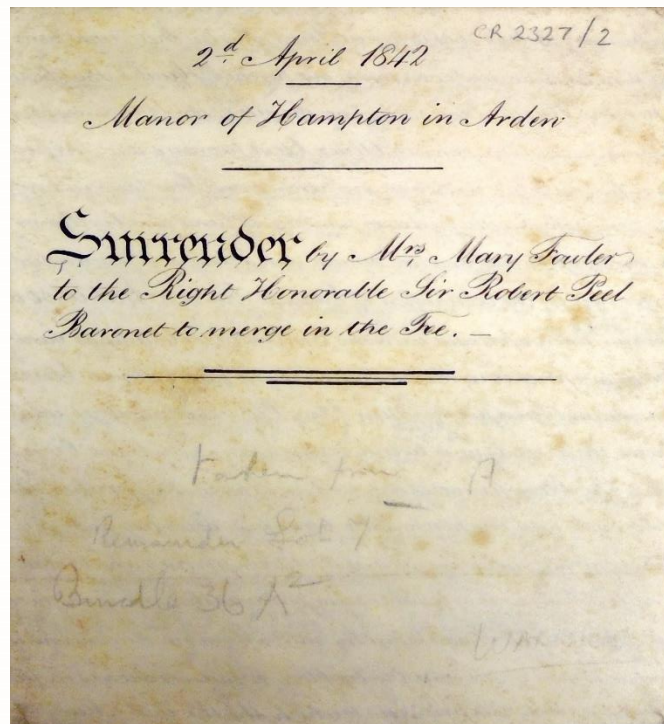 CR 2327/2
2d April 1842
Manor of Hampton in Arden
Surrender by Mrs Mary Fowler
to the Right Honorable Sir Robert Peel
Baronet to merge in the Fee. —
Taken from A
Remainder Lot 7
Bundle 36 A2
WARWICK